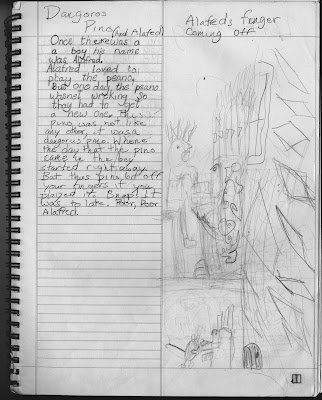 Dangoros
Pino (and Alafred)
Once there was a
a boy his name
was Alafred.
Alafred loved to
play the peano.
But one day the peano
wasnet wrcking so
they had to get
a new one. This
pino was not like
any other, it was a
dangorus pneo. Whene
the day that the pino
came he the boy
started right away.
But thas pino bit off
your fingers if you
plaized it. Snap! It
was to late. Poor, Poor
Alafred.
Alafred's fuger
Coming off